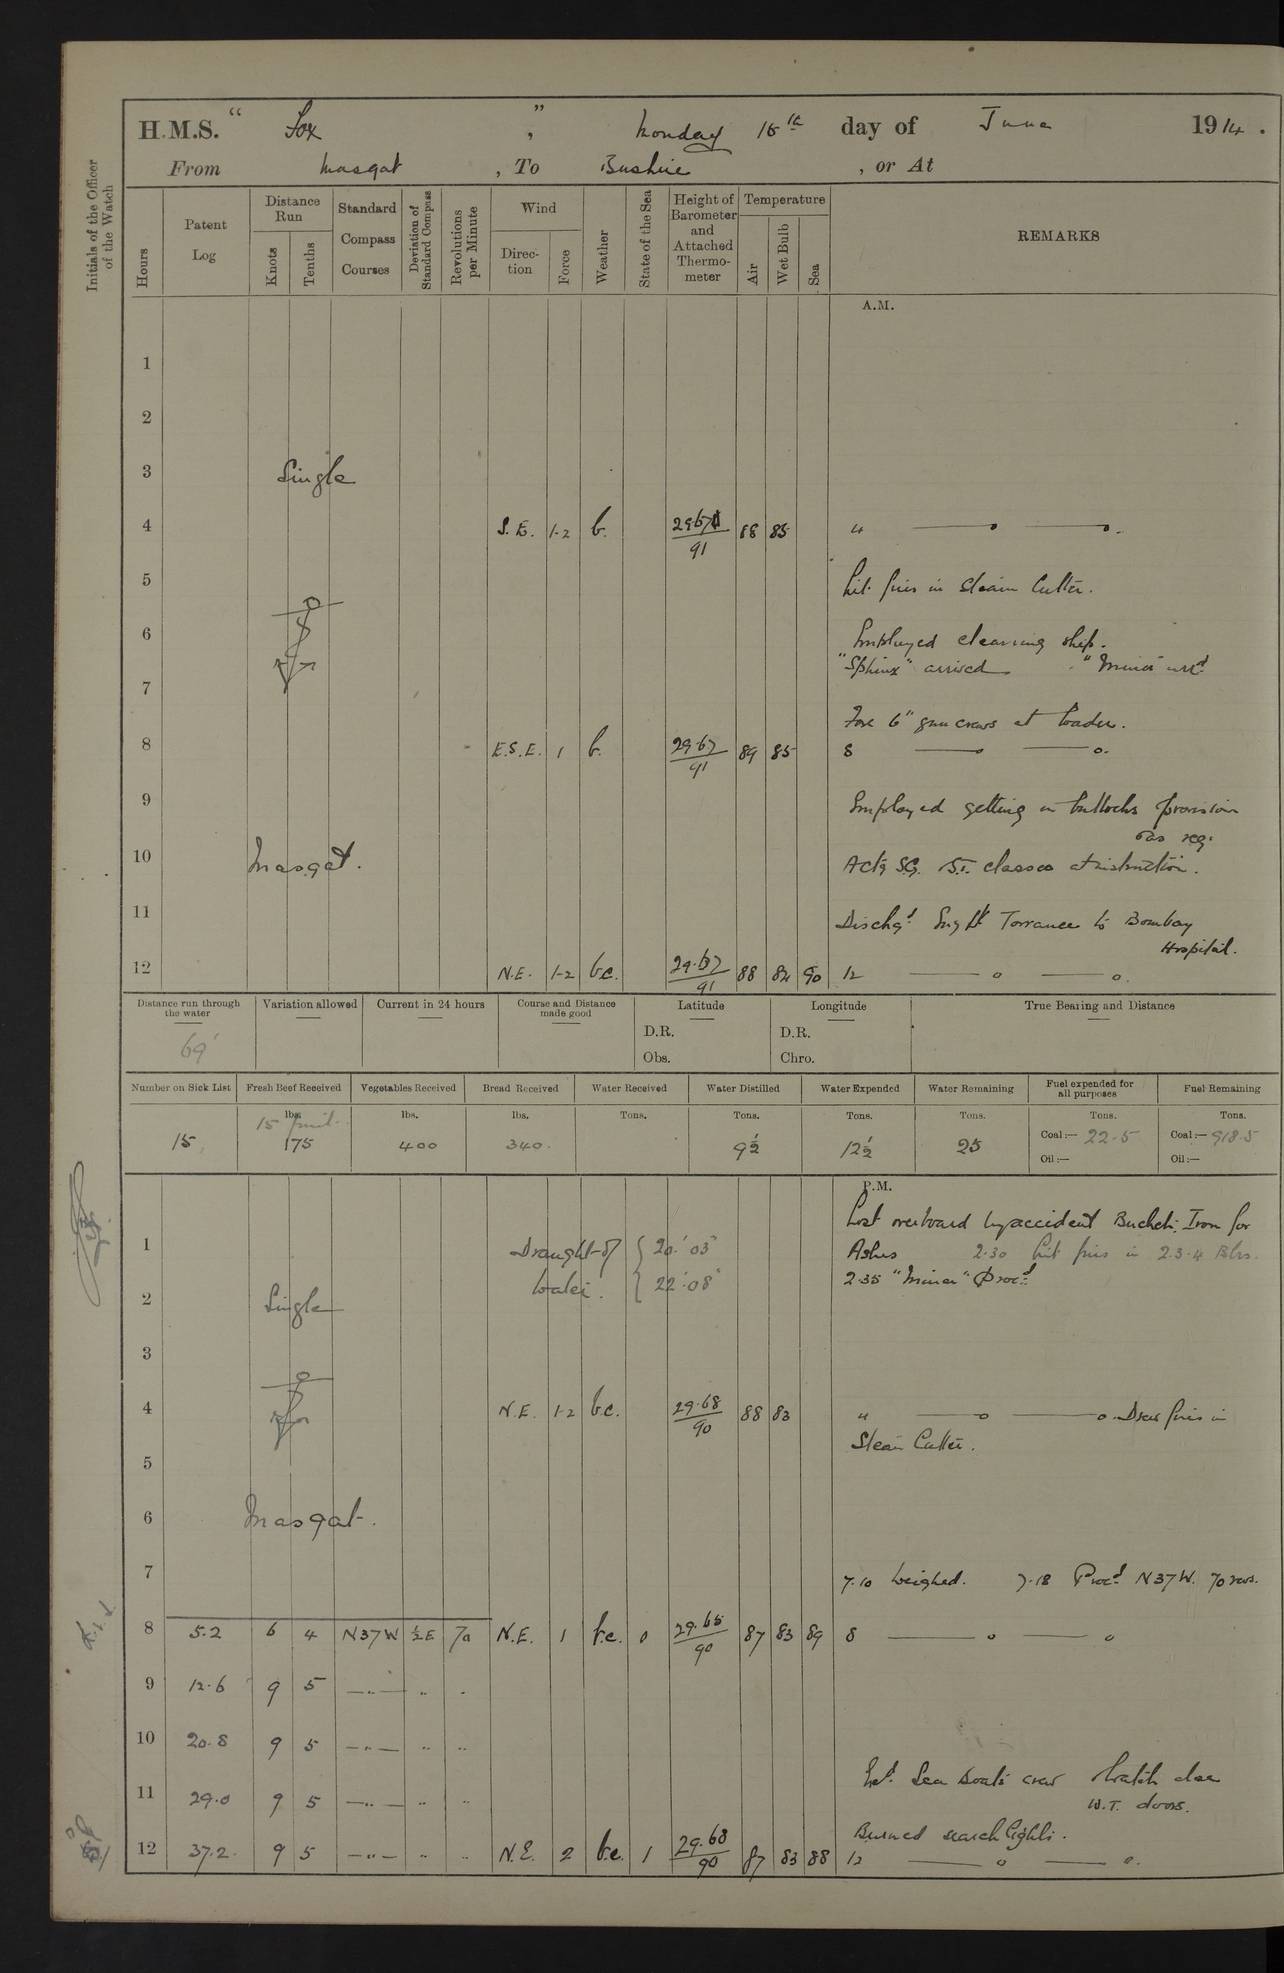 H.M.S. "Fox", Monday 15th day of June 1914.
From Masqat, To Bushire, or At
Initials of the Officer of the Watch
Hours
Patent Log
Distance Run
Knots
Tenths
Standard Compass Courses
Deviation of Standard Compass
Revolutions per Minute
Wind
Direction
Force
Weather
State of the Sea
Height of Barometer and Attached Thermometer
Temperature
Air
Wet Bulb
Sea
REMARKS
A.M.
1
2
3 Single
4 S.E. 1-2 b. 29.67 91 88 85 4
5 Lit fires in Steam Cutter.
6 Employed cleaning ship.
"Sphinx" arrived "Minia" arrd
7
Fore 6" gun crews at loader.
8 E.S.E. 1 b. 29.67 91 89 85 8
9 Employed getting in bullocks provision
as req.
10 Masqat. Actg S.G. S.T. classes at instruction.
11 Dischgd Torrance to Bombay
Hospital.
12 N.E. 1-2 b.c. 29.67 91 88 84 90 12
Distance run through the water
Variation allowed
Current in 24 hours
Course and Distance made good
Latitude
Longitude
True Bearing and Distance
69'
D.R.
Obs.
D.R.
Chro.
Number on Sick List
Fresh Beef Received
Vegetables Received
Bread Received
Water Received
Water Distilled
Water Expended
Water Remaining
Fuel expended for all purposes
Fuel Remaining
lbs. lbs. lbs. Tons. Tons. Tons. Tons. Tons. Tons.
15 15 fruit 175 400 340 9½ 12½ 25 Coal:— 22.5 Coal:— 918.5
Oil:— Oil:—
P.M.
Lost overboard by accident Bucket, Iron for
1 Draught of { 20' 03" Ashes 2.30 Lit fires in 2.3.4 Blrs.
water. { 22' 08" 2.35 "Minia" Procd
2 Single
3
4 N.E. 1-2 b.c. 29.68 90 88 83 4 Drew fires in
Steam Cutter.
5
6 Masqat.
7 7.10 Weighed. 7.18 Procd N37W. 70 revs.
8 5.2 6 4 N37W ½E 70 N.E. 1 b.c. 0 29.65 90 87 83 89 8
9 12.6 9 5 —"— " "
10 20.8 9 5 —"— " "
11 29.0 9 5 —"— " " Sea Boats crew Watch close
W.T. doors.
Burned search lights.
12 37.2 9 5 —"— " " N.E. 2 b.c. 1 29.68 90 87 83 88 12